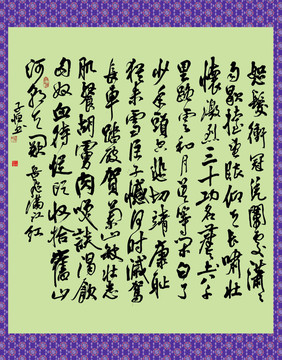 怒髮衝冠憑闌處瀟瀟
雨歇抬望眼仰天長嘯壯
懷激烈三十功名塵與土八千
里路雲和月莫等閒白了
少年頭空悲切靖康恥
猶未雪臣子憾何時滅駕
長車踏破賀蘭山缺壯志
飢餐胡虜肉笑談渴飲
匈奴血待從頭收拾舊山
河朝天闕岳飛滿江紅